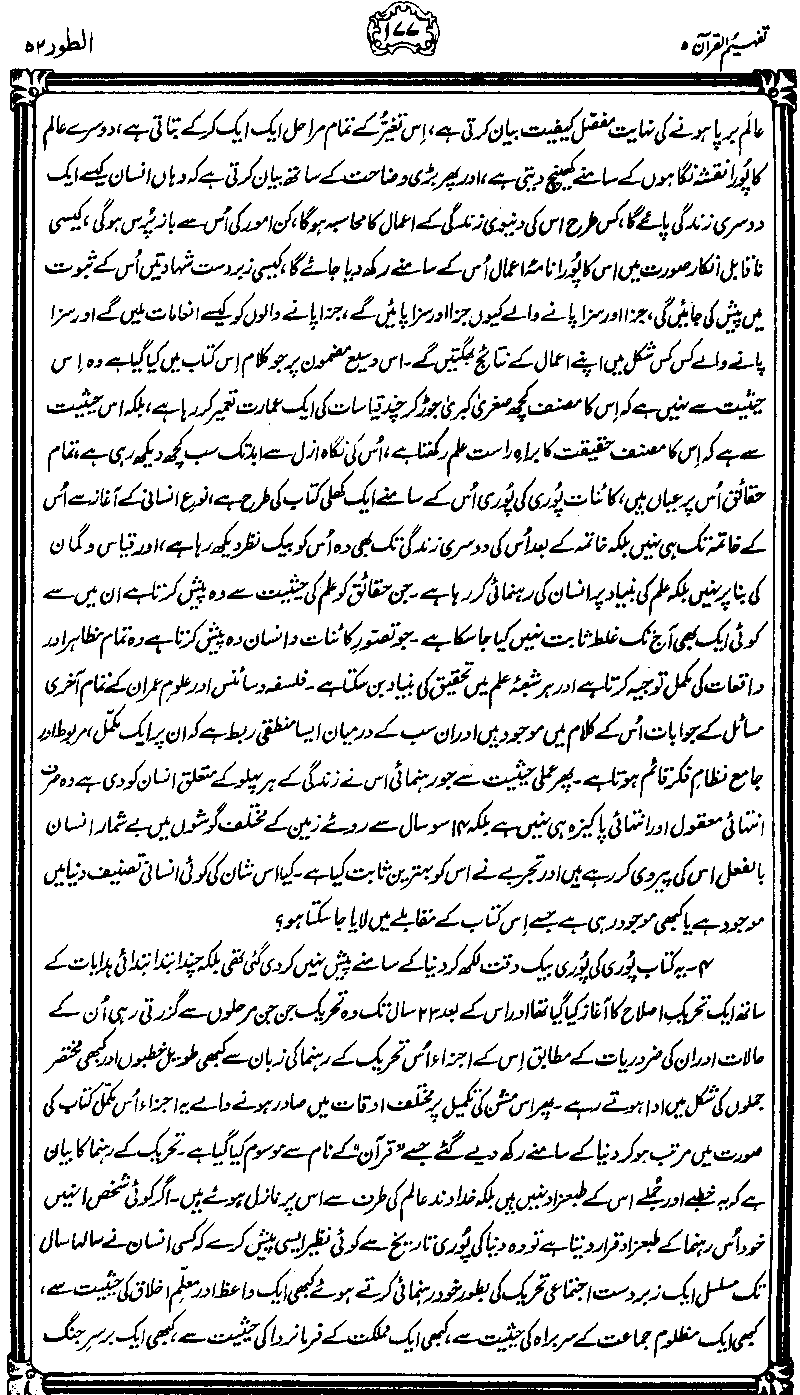 تفہیم القرآن ۵
۱۷۷
الطور ۵۲
عالَم برپا ہونے کی نہایت مفصّل کیفیت بیان کرتی ہے، اِس تغیُّر کے تمام مراحل ایک ایک کر کے بتاتی ہے، دوسرے عالم
کا پُورا نقشہ نگاہوں کے سامنے کھینچ دیتی ہے، اور پھر بڑی وضاحت کے ساتھ بیان کرتی ہے کہ وہاں انسان کیسے ایک
دوسری زندگی پائے گا، کس طرح اس کی دنیوی زندگی کے اعمال کا محاسبہ ہوگا، کن امور کی اُس سے باز پُرس ہوگی، کیسی
ناقابل انکار صورت میں اس کا پُورا نامۂ اعمال اُس کے سامنے رکھ دیا جائے گا، کیسی زبردست شہادتیں اُس کے ثبوت
میں پیش کی جائیں گی، جزا اور سزا پانے والے کیوں جزا اور سزا پائیں گے، جزا پانے والوں کو کیسے انعامات ملیں گے اور سزا
پانے والے کس کس شکل میں اپنے اعمال کے نتائج بھگتیں گے۔ اس وسیع مضمون پر جو کلام اِس کتاب میں کیا گیا ہے وہ اِس
حیثیت سے نہیں ہے کہ اِس کا مصنف کچھ صغریٰ کبریٰ جوڑ کر چند قیاسات کی ایک عمارت تعمیر کر رہا ہے، بلکہ اس حیثیت
سے ہے کہ اِس کا مصنف حقیقت کا براہِ راست علم رکھتا ہے، اُس کی نگاہ ازل سے ابد تک سب کچھ دیکھ رہی ہے، تمام
حقائق اُس پر عیاں ہیں، کائنات پوری کی پوری اُس کے سامنے ایک کھلی کتاب کی طرح ہے، نوعِ انسانی کے آغاز سے اُس
کے خاتمہ تک ہی نہیں بلکہ خاتمہ کے بعد اُس کی دوسری زندگی تک بھی وہ اُس کو بیک نظر دیکھ رہا ہے، اور قیاس و گمان
کی بنا پر نہیں بلکہ علم کی بُنیاد پر انسان کی رہنمائی کر رہا ہے۔ جن حقائق کو علم کی حیثیت سے وہ پیش کرتا ہے ان میں سے
کوئی ایک بھی آج تک غلط ثابت نہیں کیا جا سکا ہے۔ جو تصورِ کائنات و انسان وہ پیش کرتا ہے وہ تمام مظاہر اور
واقعات کی مکمل توجیہ کرتا ہے اور ہر شعبۂ علم میں تحقیق کی بنیاد بن سکتا ہے۔ فلسفہ و سائنس اور علوم عمران کے تمام آخری
مسائل کے جوابات اُس کے کلام میں موجود ہیں اور ان سب کے درمیان ایسا منطقی ربط ہے کہ ان پر ایک مکمّل، مربوط اور
جامع نظامِ فکر قائم ہوتا ہے۔ پھر عملی حیثیت سے جو رہنمائی اس نے زندگی کے ہر پہلو کے متعلق انسان کو دی ہے وہ صرف
انتہائی معقول اور انتہائی پاکیزہ ہی نہیں ہے بلکہ ۱۴ سو سال سے روئے زمین کے مختلف گوشوں میں بے شمار انسان
بالفعل اس کی پیروی کر رہے ہیں اور تجربے نے اس کو بہترین ثابت کیا ہے۔ کیا اس شان کی کوئی انسانی تصنیف دنیا میں
موجود ہے یا کبھی موجود رہی ہے جسے اِس کتاب کے مقابلے میں لایا جا سکتا ہو؟
۴۔ یہ کتاب پُوری کی پُوری بیک وقت لکھ کر دنیا کے سامنے پیش نہیں کر دی گئی تھی بلکہ چند ابتدائی ہدایات کے
ساتھ ایک تحریکِ اصلاح کا آغاز کیا گیا تھا اور اس کے بعد ۲۳ سال تک وہ تحریک جن جن مرحلوں سے گزرتی رہی اُن کے
حالات اور ان کی ضروریات کے مطابق اِس کے اجزاء اُس تحریک کے رہنما کی زبان سے کبھی طویل خطبوں اور کبھی مختصر
جملوں کی شکل میں ادا ہوتے رہے۔ پھر اس مشن کی تکمیل پر مختلف اوقات میں صادر ہونے والے یہ اجزاء اُس مکمّل کتاب کی
صورت میں مرتب ہو کر دنیا کے سامنے رکھ دیے گئے جسے ”قرآن“ کے نام سے موسوم کیا گیا ہے۔ تحریک کے رہنما کا بیان
ہے کہ یہ خطبے اور جُملے اس کے طبعزاد نہیں ہیں بلکہ خداوند عالم کی طرف سے اس پر نازل ہوئے ہیں۔ اگر کوئی شخص انہیں
خود اُس رہنما کے طبعزاد قرار دیتا ہے تو وہ دنیا کی پُوری تاریخ سے کوئی نظیر ایسی پیش کرے کہ کسی انسان نے سالہا سال
تک مسلسل ایک زبردست اجتماعی تحریک کی بطور خود رہنمائی کرتے ہوئے کبھی ایک واعظ اور معلّمِ اخلاق کی حیثیت سے،
کبھی ایک مظلوم جماعت کے سربراہ کی حیثیت سے، کبھی ایک مملکت کے فرمانروا کی حیثیت سے، کبھی ایک برسرِ جنگ